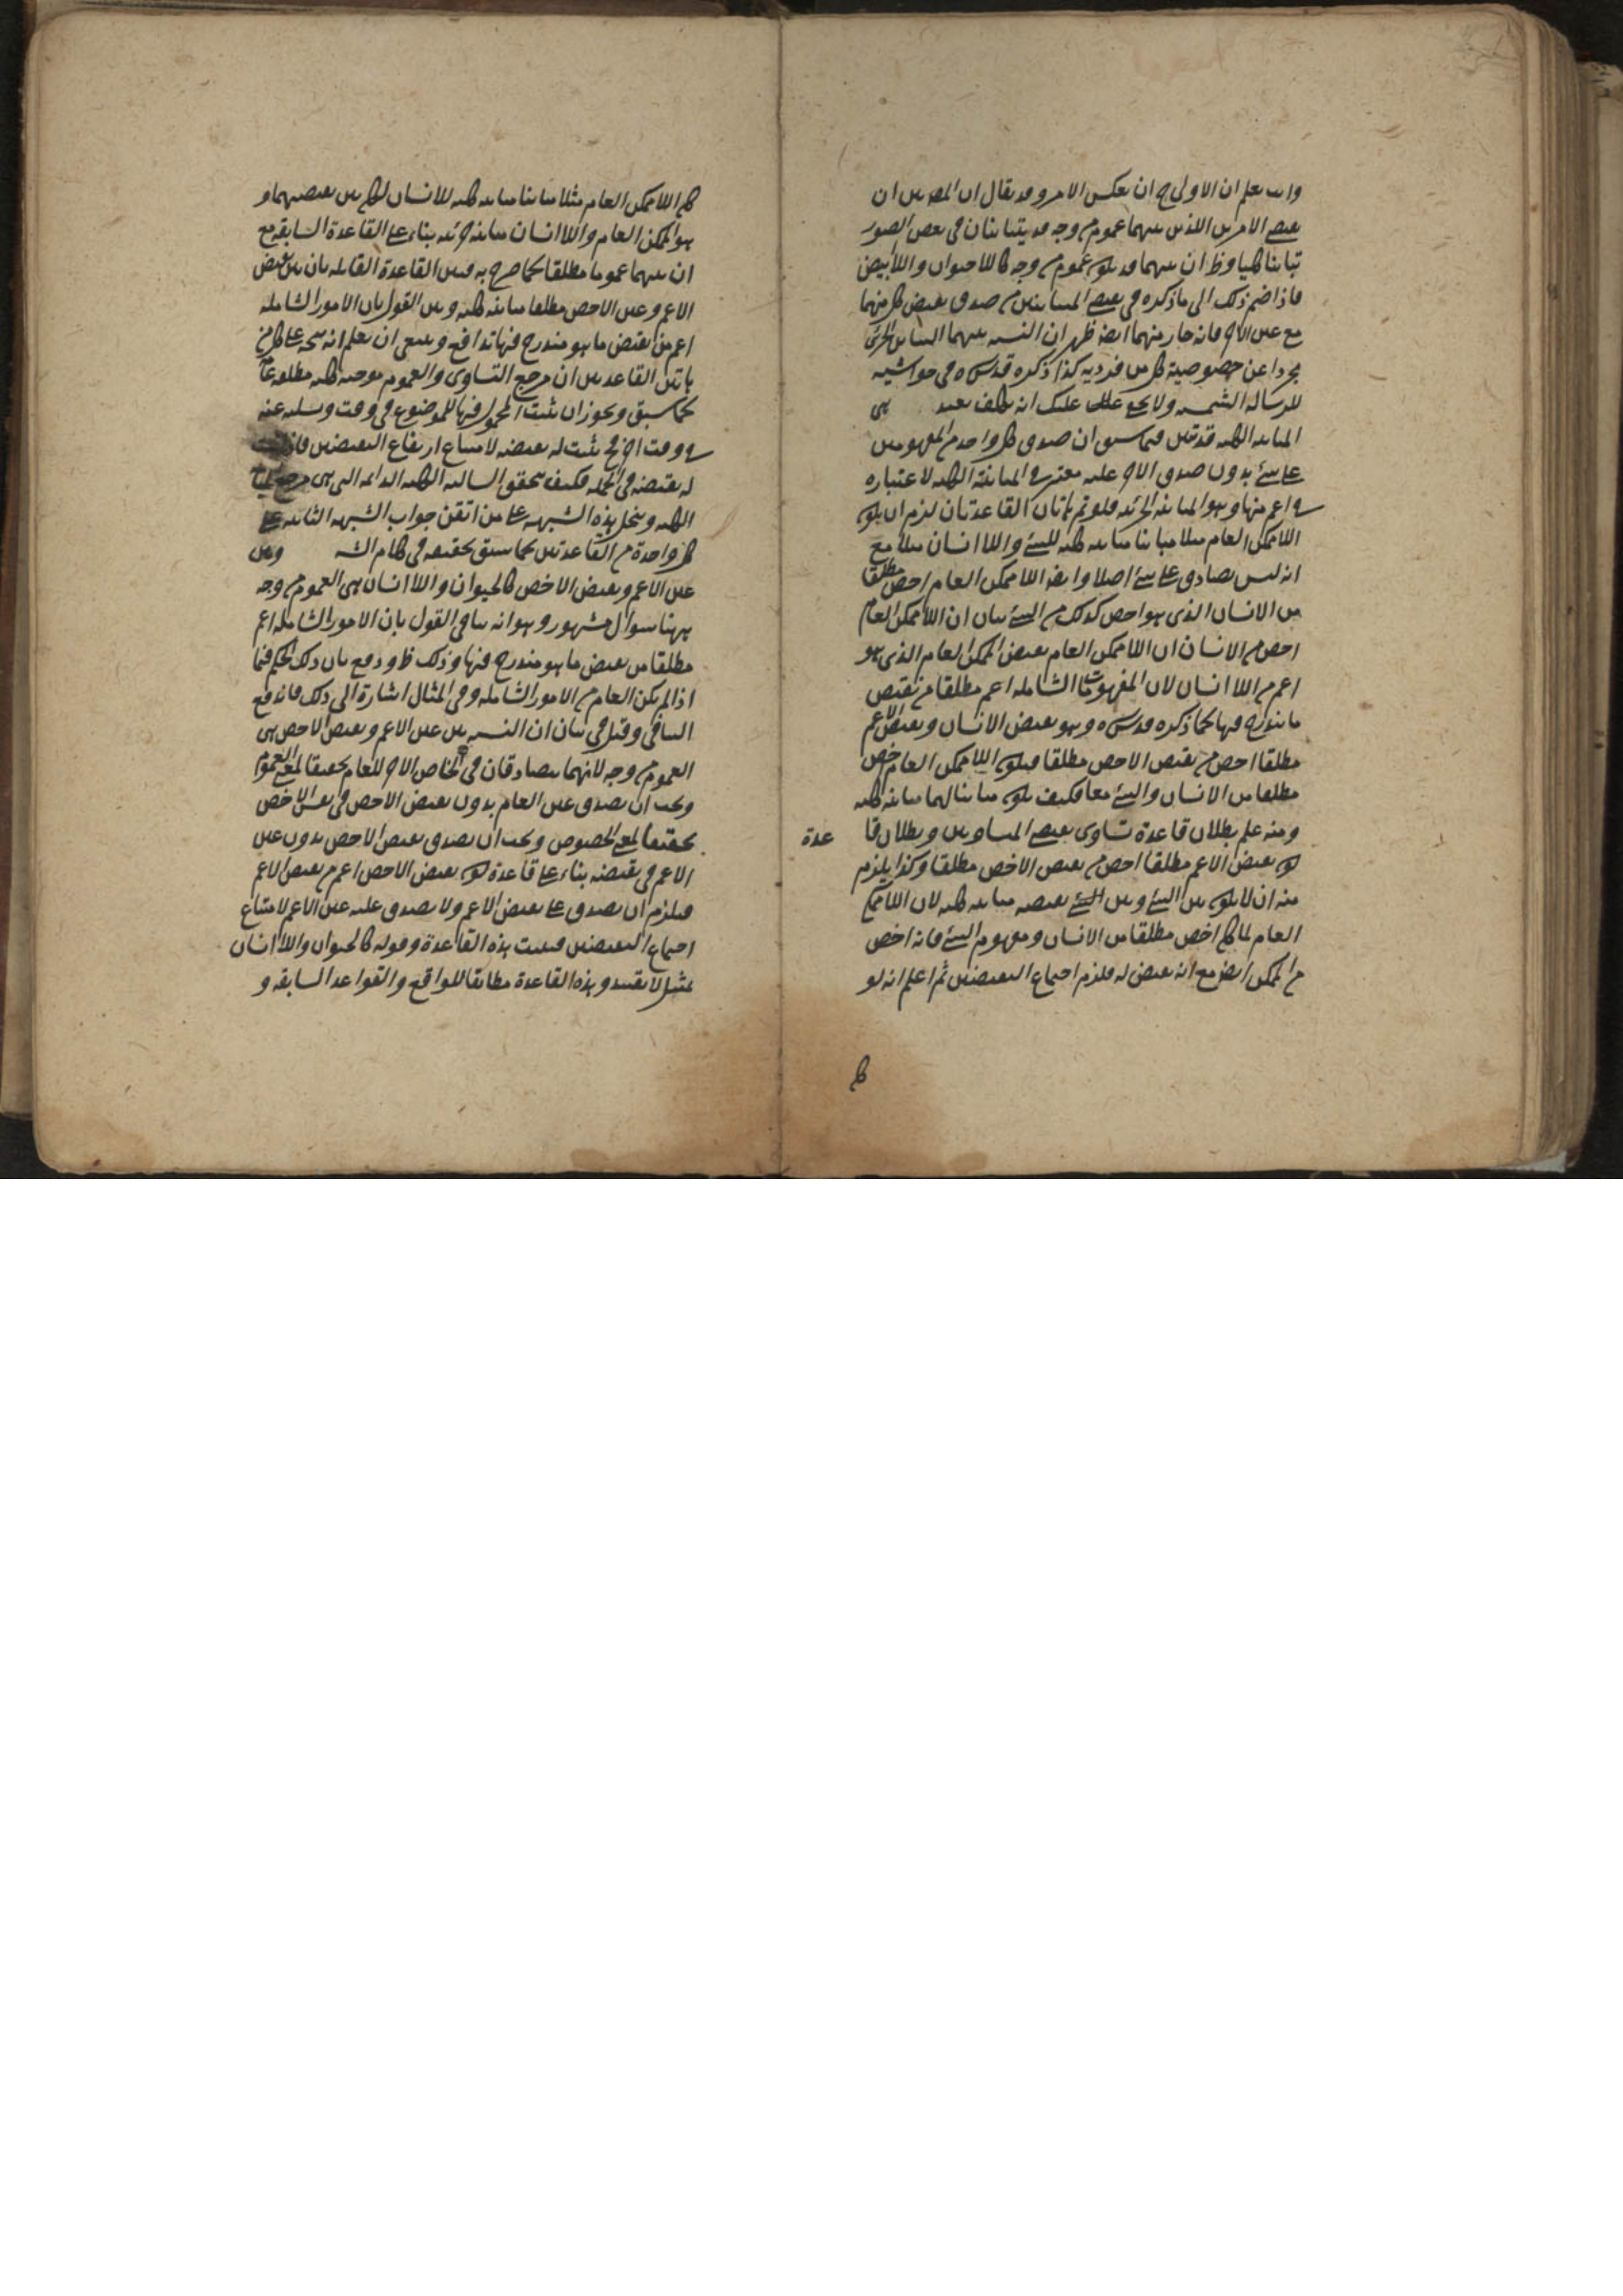 وانت تعلم ان الاولى ح ان يعكس الامر وقد يقال ان المص بين ان
نقيضي الامرين اللذين بينهما عموم من وجه قد يتباينان في بعض الصور
تباينا كليا وظ ان بينهما قد يكون عموم من وجه كاللاحيوان واللاابيض
فاذا ضم ذلك الى ما ذكره في نقيضي المتباينين من صدق نقيض كل منهما
مع عين الاخر فانه جار منهما ايضا ظهر ان النسبة بينهما التباين الجزئي
مجردا عن خصوصية كل من فرديه كذا ذكره قدس سره في حواشيه
للرسالة الشمسية ولا يخفى عليك انه تكلف بعيد
المباينة الكلية قد تبين فيما سبق ان صدق كل واحد من المفهومين
على شئ بدون صدق الاخر عليه معتبر في المباينة الكلية لاعتباره
في اعم منها وهو المباينة الجزئية فلو تم هاتان القاعدتان لزم ان يكون
اللاممكن العام مثلا مباينا مباينة كلية للشئ واللاانسان مثلا مع
انه ليس بصادق على شئ اصلا وايضا اللاممكن العام اخص مطلقا
من الانسان الذي هو اخص كذلك من الشئ بيان ان اللاممكن العام
اخص من الانسان ان اللاممكن العام نقيض الممكن العام الذي هو
اعم من اللاانسان لان المفهومات الشاملة اعم مطلقا من نقيض
ما يندرج فيها كما ذكره قدس سره وهو نقيض الانسان ونقيض الاعم
مطلقا اخص من نقيض الاخص مطلقا فيكون اللاممكن العام اخص
مطلقا من الانسان والشئ معا فكيف يكون مباينا لهما مباينة كلية
ومنه علم بطلان قاعدة تساوي نقيضي المتساويين وبطلان قا عدة
كون نقيض الاعم مطلقا اخص من نقيض الاخص مطلقا وكذا يلزم
منه ان لا يكون بين الشئ وبين الشئ نقيضه مباينة كلية لان اللاممكن
العام لما كان اخص مطلقا من الانسان ومفهوم الشئ فانه اخص
من الممكن ايضا مع انه نقيض له فلزم اجتماع النقيضين ثم اعلم انه لو
كان
كان اللاممكن العام مثلا مباينا مباينة كلية للانسان لكان بين نقيضيهما و
هو الممكن العام واللاانسان مباينة جزئية بناء على القاعدة السابقة مع
ان بينهما عموما مطلقا كما صرح به فبين القاعدة القائلة بان بين نقيض
الاعم وعين الاخص مطلقا مباينة كلية وبين القول بان الامور الشاملة
اعم من نقيض ما هو مندرج فيها تدافع وينبغي ان يعلم انه يتجه على كل من
هاتين القاعدتين ان مرجع التساوي والعموم موجبة كلية مطلقة عامة
كما سبق ويجوز ان يثبت المحمول فيها للموضوع في وقت وسلبه عنه
في وقت اخر فح يثبت له نقيضه لامتناع ارتفاع النقيضين فاذا ثبت
له نقيضه في الجملة فكيف يتحقق السالبة الكلية الدائمة التي هي مرجع المباينة
الكلية وينحل هذه الشبهة على من اتقن جواب الشبهة الثانية على
كل واحدة من القاعدتين كما سبق تحقيقه في كلام الش وبين
عين الاعم ونقيض الاخص كالحيوان واللاانسان هي العموم من وجه
ههنا سوال مشهور وهو انه ينافي القول بان الامور الشاملة اعم
مطلقا من نقيض ما هو مندرج فيها وذلك ظ ودفع بان ذلك الحكم فيما
اذا لم يكن العام من الامور الشاملة وفي المثال اشارة الى ذلك فاندفع
التنافي وقيل في بيان ان النسبة بين عين الاعم ونقيض الاخص هي
العموم من وجه لانهما يتصادقان في الخاص الاخر للعام تحقيقا لمعنى العموم
ويجب ان يصدق عين العام بدون نقيض الاخص في عين الاخص
تحقيقا لمعنى الخصوص ويجب ان يصدق نقيض الاخص بدون عين
الاعم في نقيضه بناء على قاعدة كون نقيض الاخص اعم من نقيض الاعم
فيلزم ان يصدق على نقيض الاعم ولا يصدق عليه عين الاعم لامتناع
اجتماع النقيضين فثبت هذه القاعدة وقوله كالحيوان واللاانسان
تمثيل لا تقييد وهذه القاعدة مطابقا للواقع والقواعد السابقة و